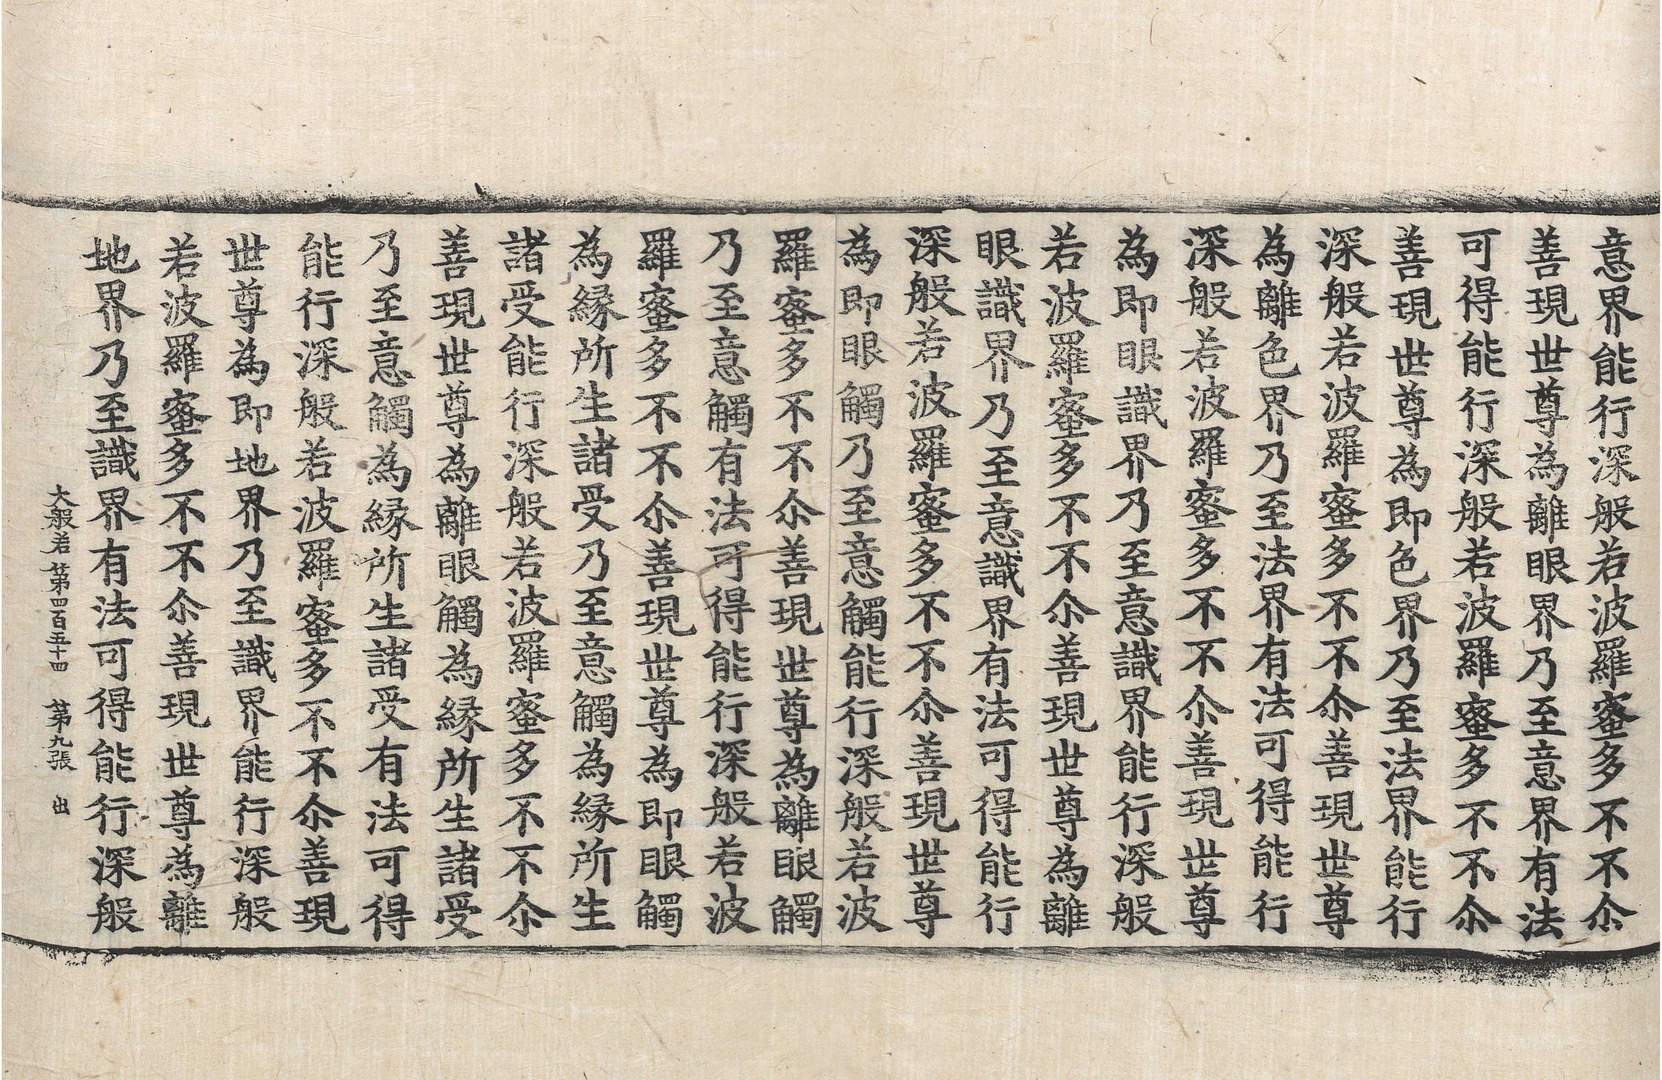 意界能行深般若波羅蜜多不不尒
善現世尊為離眼界乃至意界有法
可得能行深般若波羅蜜多不不尒
善現世尊為即色界乃至法界能行
深般若波羅蜜多不不尒善現世尊
為離色界乃至法界有法可得能行
深般若波羅蜜多不不尒善現世尊
為即眼識界乃至意識界能行深般
若波羅蜜多不不尒善現世尊為離
眼識界乃至意識界有法可得能行
深般若波羅蜜多不不尒善現世尊
為即眼觸乃至意觸能行深般若波
羅蜜多不不尒善現世尊為離眼觸
乃至意觸有法可得能行深般若波
羅蜜多不不尒善現世尊為即眼觸
為縁所生諸受乃至意觸為縁所生
諸受能行深般若波羅蜜多不不尒
善現世尊為離眼觸為縁所生諸受
乃至意觸為縁所生諸受有法可得
能行深般若波羅蜜多不不尒善現
世尊為即地界乃至識界能行深般
若波羅蜜多不不尒善現世尊為離
地界乃至識界有法可得能行深般
大般若第四百五十四 第九張 出